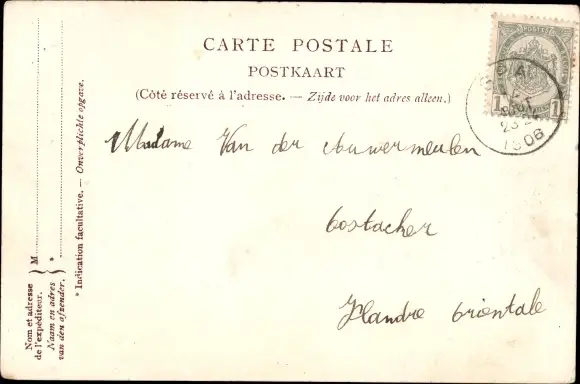 CARTE POSTALE
POSTKAART
(Côté réservé à l'adresse. — Zijde voor het adres alleen.)
Madame Van der
Oostacker
Flandre Orientale
1 1
1906
* Indication facultative. — Onverplichte opgave.
M
*
Nom et adresse
de l'expéditeur.
Naam en adres
van den afzender.